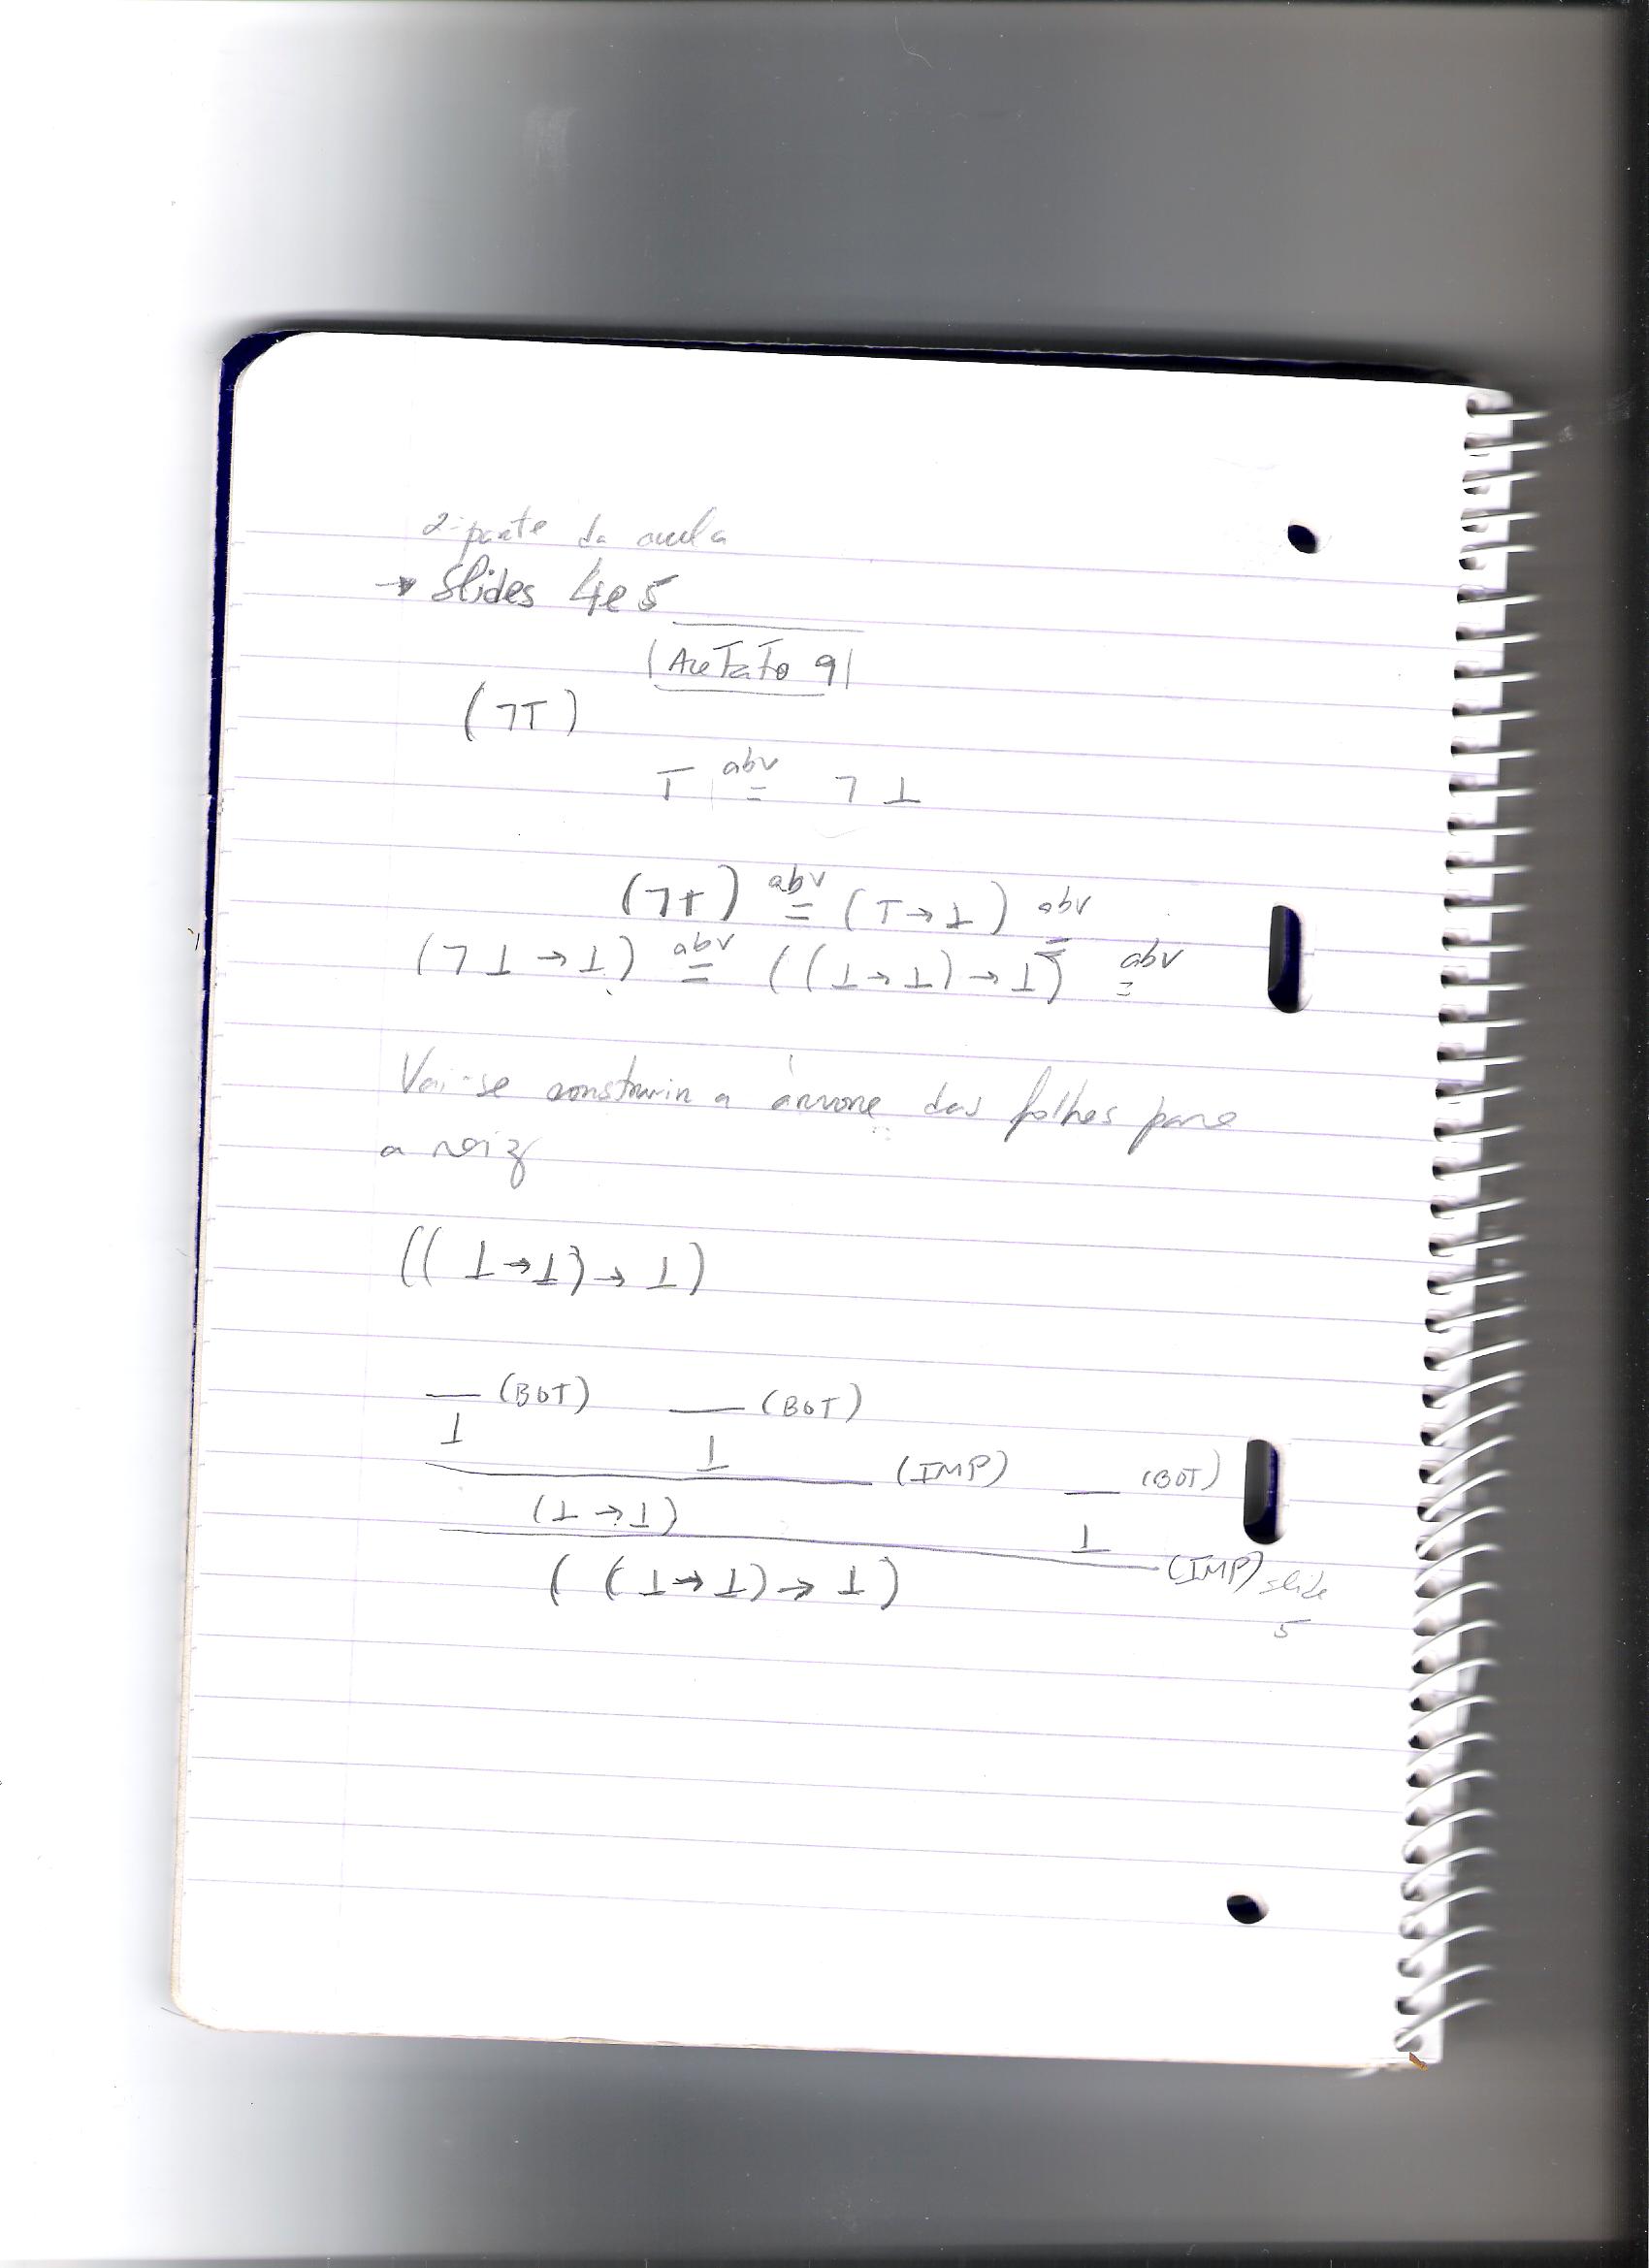 2ª parte da aula
→ Slides 4 e 5
Acetato 9
(¬⊤)
⊤ abv = ¬⊥
(¬⊤) abv = (⊤→⊥) abv =
(¬⊥→⊥) abv = ((⊥→⊥)→⊥) abv =
Vai-se construir a árvore das folhas para
a raiz
((⊥→⊥)→⊥)
(BOT) (BOT)
⊥ ⊥ (IMP) (BOT)
(⊥→⊥) ⊥
((⊥→⊥)→⊥) (IMP) slide
5